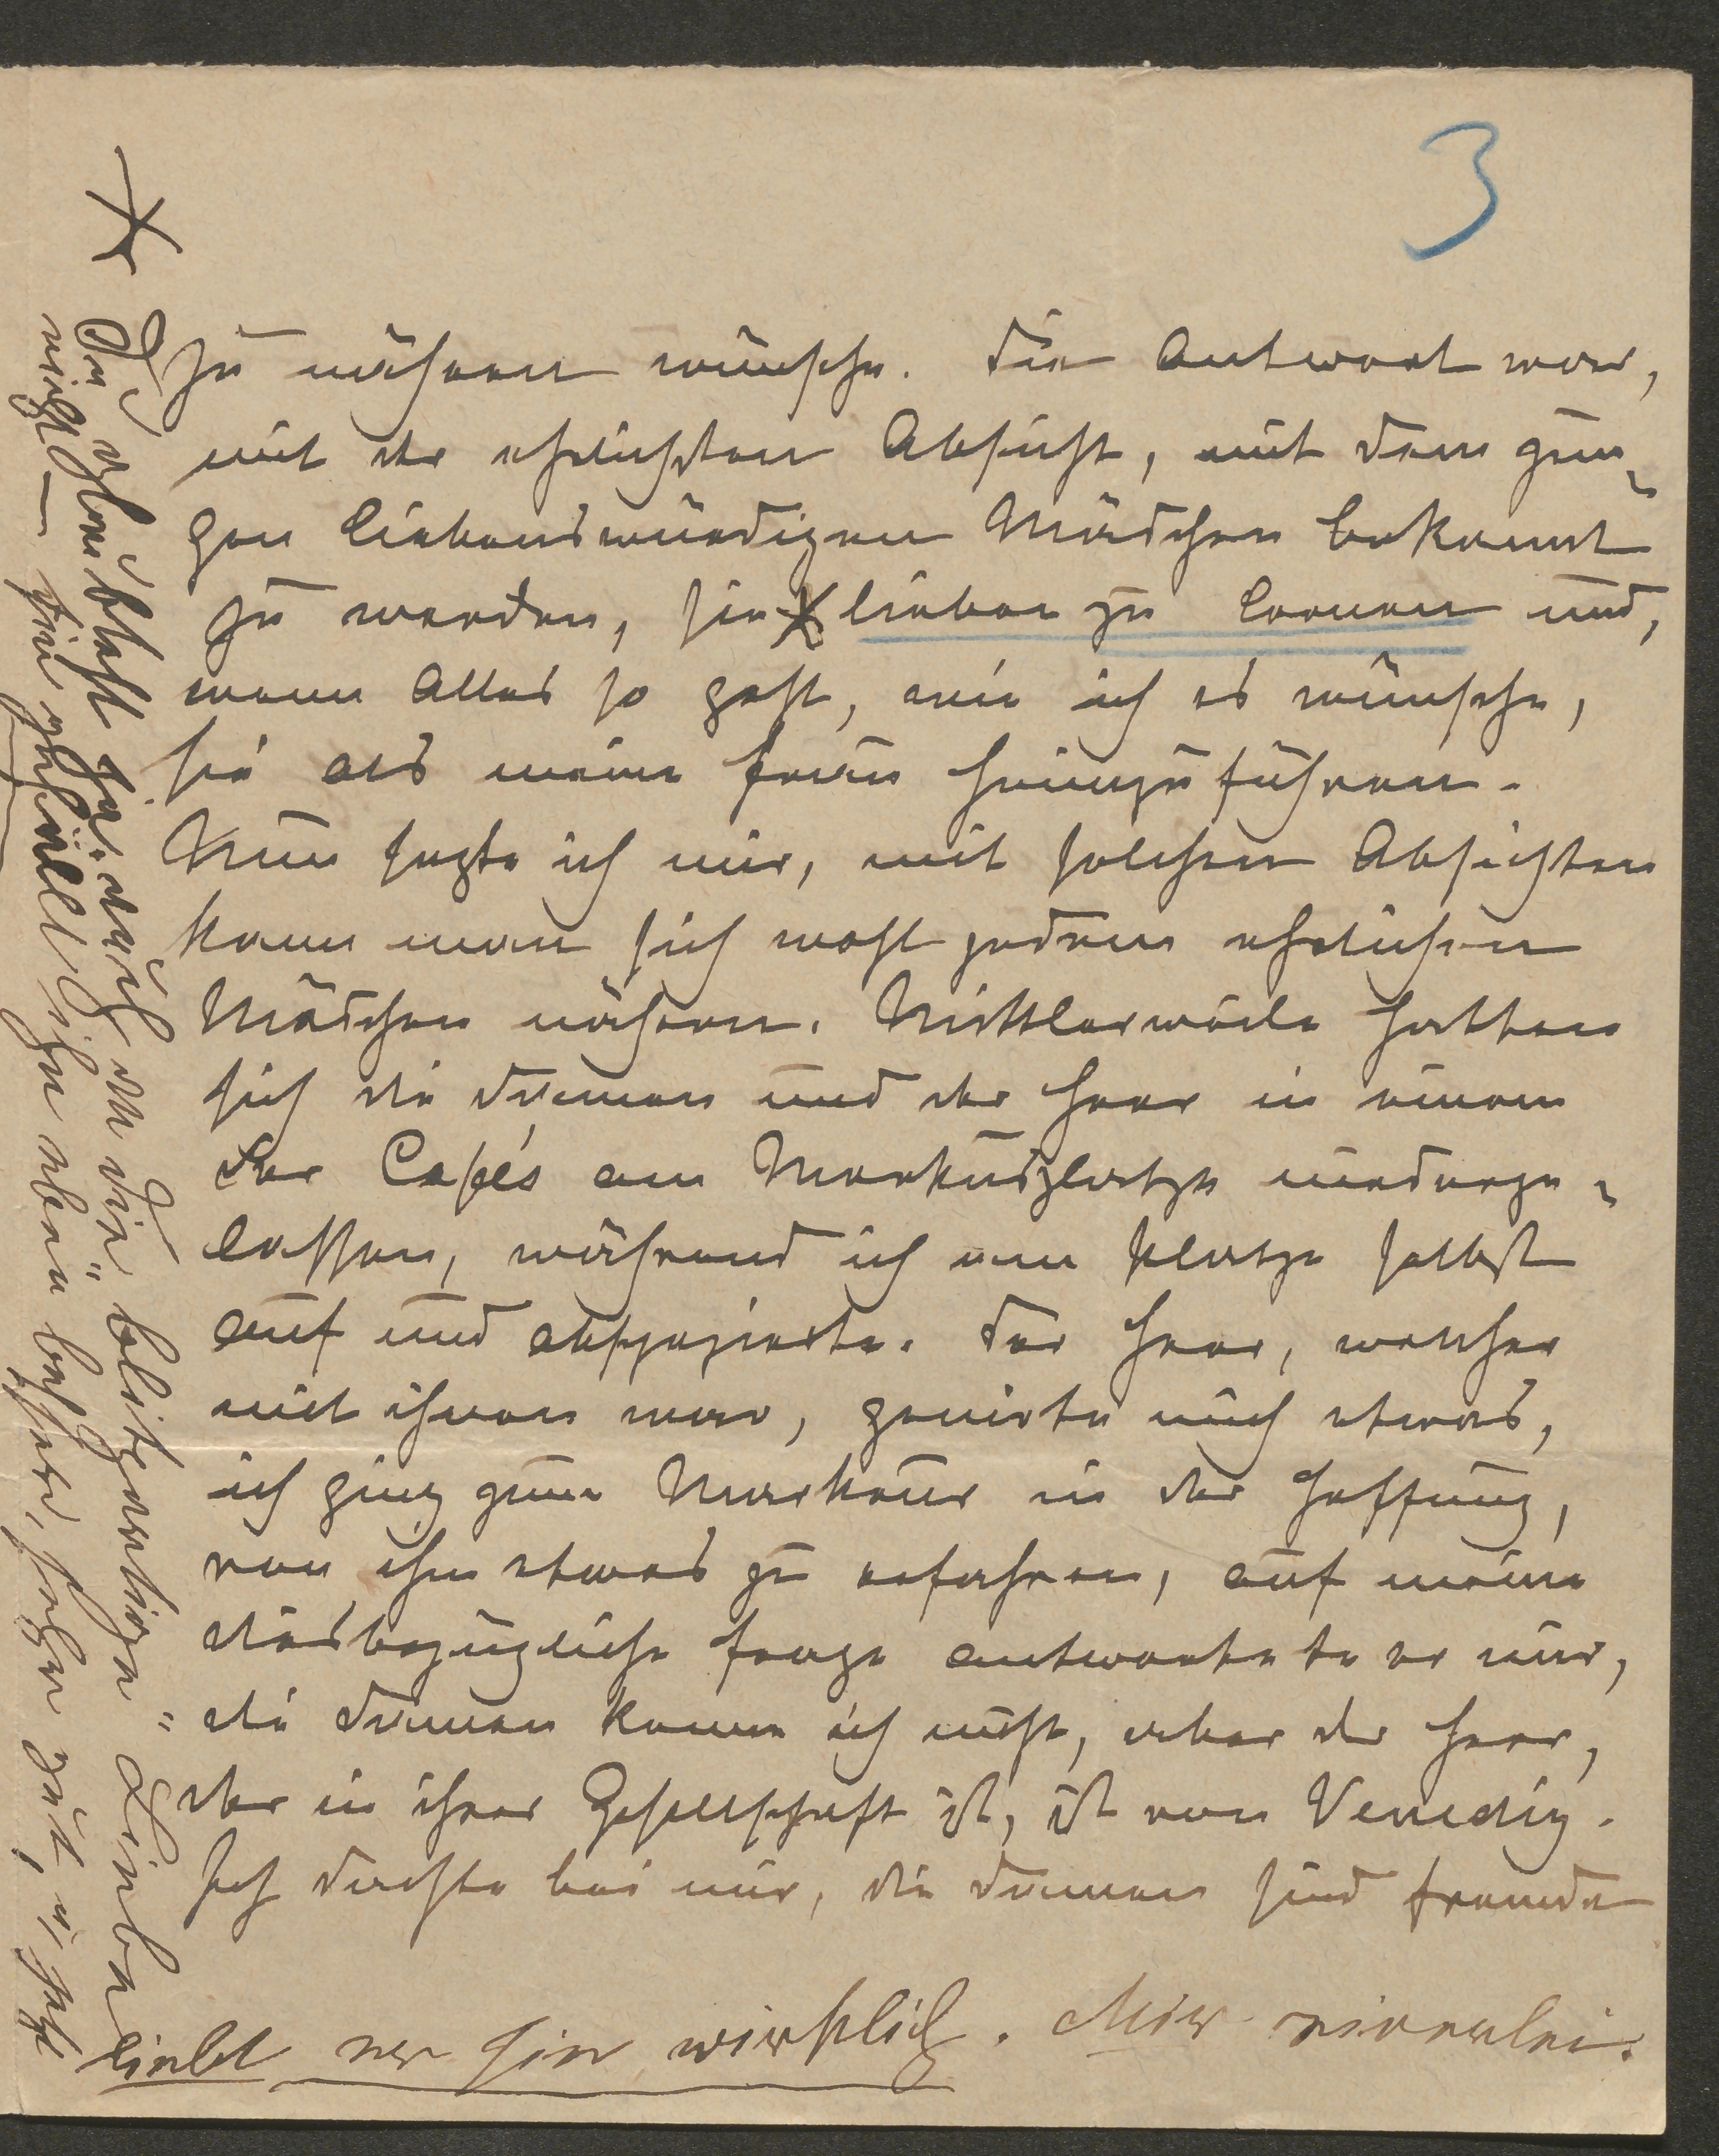 3
zu nähern wünsche. Die Antwort war,
mit der ehrlichsten Absicht, mit dem gan¬
zen liebenswürdigen Mädchen bekannt
zu werden, sie * lieben zu lernen und,
wenn Alles so geht, wie ich es wünsche,
sie als meine Frau heimzuführen.
Nun sagte ich mir, mit solchen Absichten
kann man sich wohl jedem ehrlichen
Mädchen nähern. Mittlerweile hatten
sich die Damen und der Herr in einem
der Cafés am Markusplatze niederge¬
lassen, während ich am Platze selbst
auf und abspazierte. Der Herr, welcher
mit ihnen war, genierte mich etwas,
ich ging zum Marköur in der Hoffnung,
von ihm etwas zu erfahren, auf meine
diesbezügliche Frage antwortete er mir,
die Damen kenne ich nicht, aber der Herr,
der in ihrer Gesellschaft ist, ist von Venedig.
Ich dachte bei mir, die Damen sind fremde
* Du glaubst ja auch an die "blitzartige" Liebe
nicht – sein Gefühl ihr eben besser, sehr gut, u jetzt
liebt er sie wirklich. Mir einerlei.